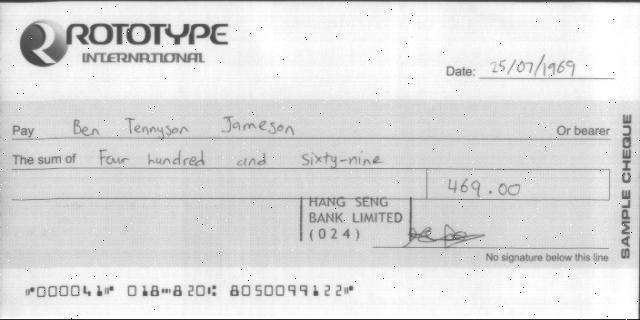 ROTOTYPE
INTERNATIONAL
Date: 25/07/1969
Pay Ben Tennyson Jameson Or bearer
The sum of Four hundred and sixty-nine
469.00
HANG SENG
BANK. LIMITED
(024)
No signature below this line
SAMPLE CHEQUE
⑈000041⑈ 018⑉820⑆ 8050099122⑈